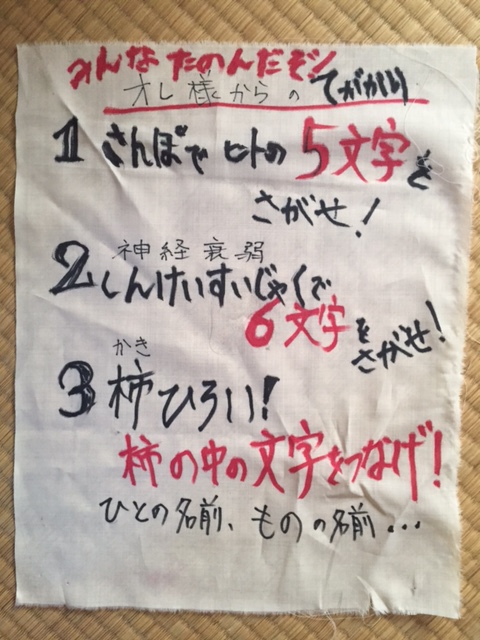 みんなたのんだぞ!
オレ様からのてがかり
1 さんぽでヒトの5文字を
さがせ!
神経衰弱
2 しんけいすいじゃくで
6文字を
さがせ!
かき
3 柿ひろい!
柿の中の文字をつなげ!
ひとの名前、ものの名前...